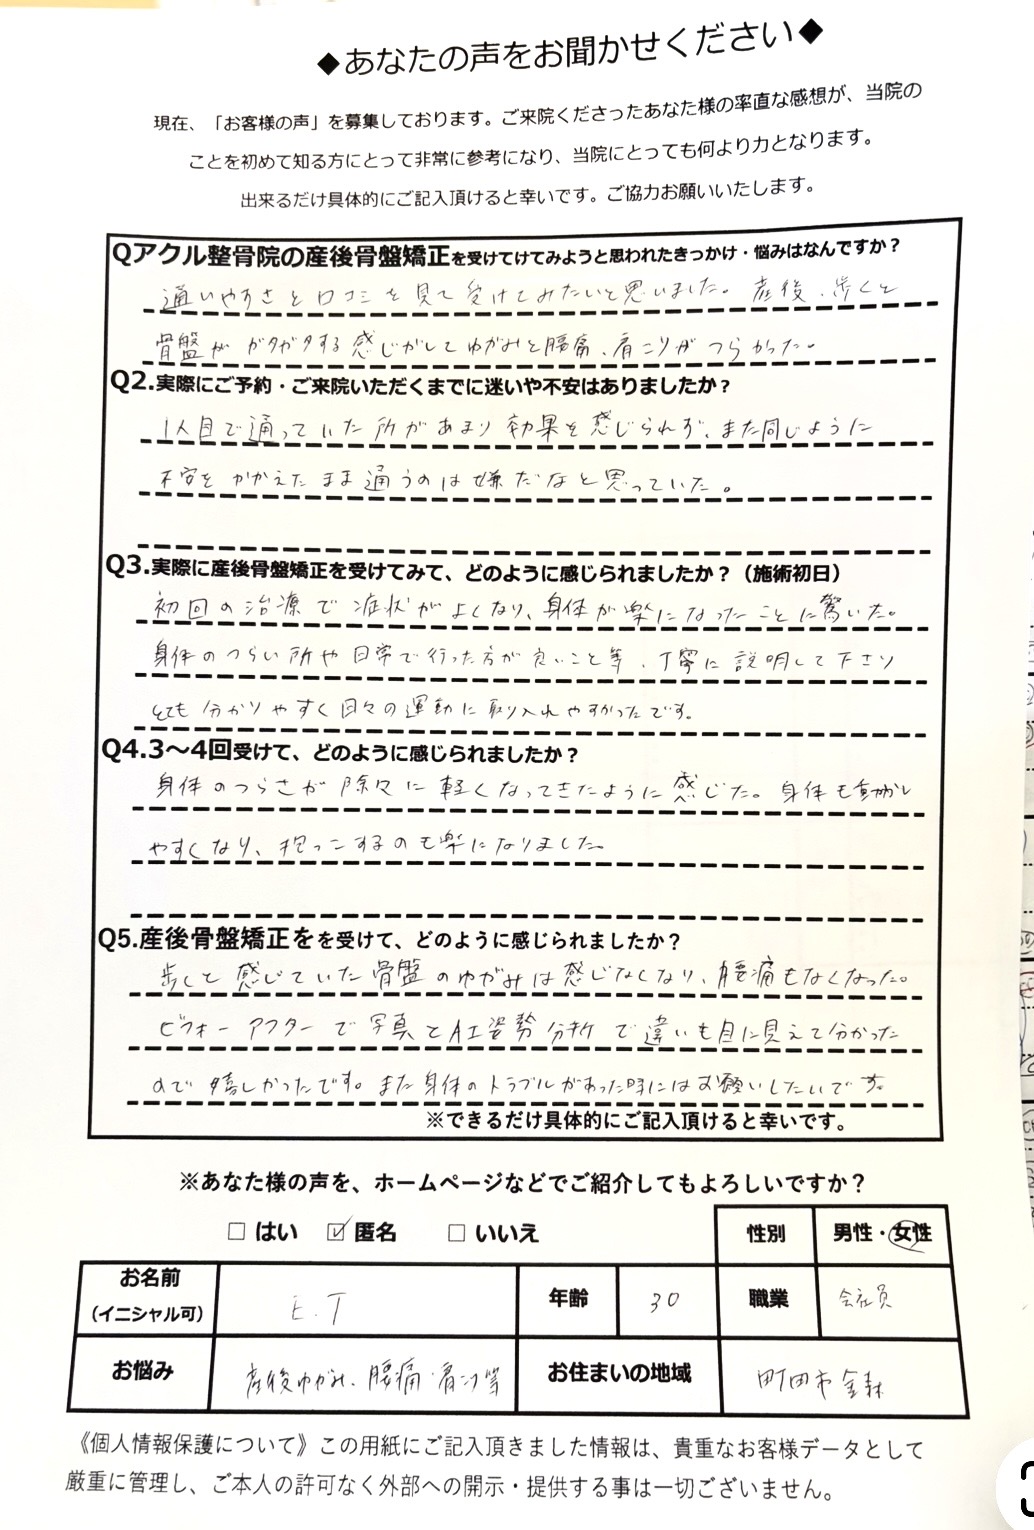 ◆あなたの声をお聞かせください◆
現在、「お客様の声」を募集しております。ご来院くださったあなた様の率直な感想が、当院の
ことを初めて知る方にとって非常に参考になり、当院にとっても何より力となります。
出来るだけ具体的にご記入頂けると幸いです。ご協力お願いいたします。
Qアクル整骨院の産後骨盤矯正を受けてけてみようと思われたきっかけ・悩みはなんですか？
通いやすさと口コミを見て受けてみたいと思いました。産後、歩くと
骨盤がガタガタする感じがしてゆがみと腰痛、肩こりがつらかった。
Q2.実際にご予約・ご来院いただくまでに迷いや不安はありましたか？
1人目で通っていた所があまり効果を感じられず、また同じように
不安をかかえたまま通うのは嫌だなと思っていた。
Q3.実際に産後骨盤矯正を受けてみて、どのように感じられましたか？（施術初日）
初回の治療で症状がよくなり、身体が楽になったことに驚いた。
身体のつらい所や日常で行った方が良いこと等、丁寧に説明して下さり
とても分かりやすく日々の運動に取り入れやすかったです。
Q4.3～4回受けて、どのように感じられましたか？
身体のつらさが除々に軽くなってきたように感じた。身体も動かし
やすくなり、抱っこするのも楽になりました。
Q5.産後骨盤矯正をを受けて、どのように感じられましたか？
歩くと感じていた骨盤のゆがみは感じなくなり、腰痛もなくなった。
ビフォーアフターで写真とAI姿勢分析で違いも目に見えて分かった
ので嬉しかったです。また身体のトラブルがあった時にはお願いしたいです。
※できるだけ具体的にご記入頂けると幸いです。
※あなた様の声を、ホームページなどでご紹介してもよろしいですか？
□ はい ☑ 匿名 □ いいえ 性別 男性・女性
お名前（イニシャル可） E.T 年齢 30 職業 会社員
お悩み 産後ゆがみ、腰痛・肩こり等 お住まいの地域 町田市金森
《個人情報保護について》この用紙にご記入頂きました情報は、貴重なお客様データとして
厳重に管理し、ご本人の許可なく外部への開示・提供する事は一切ございません。